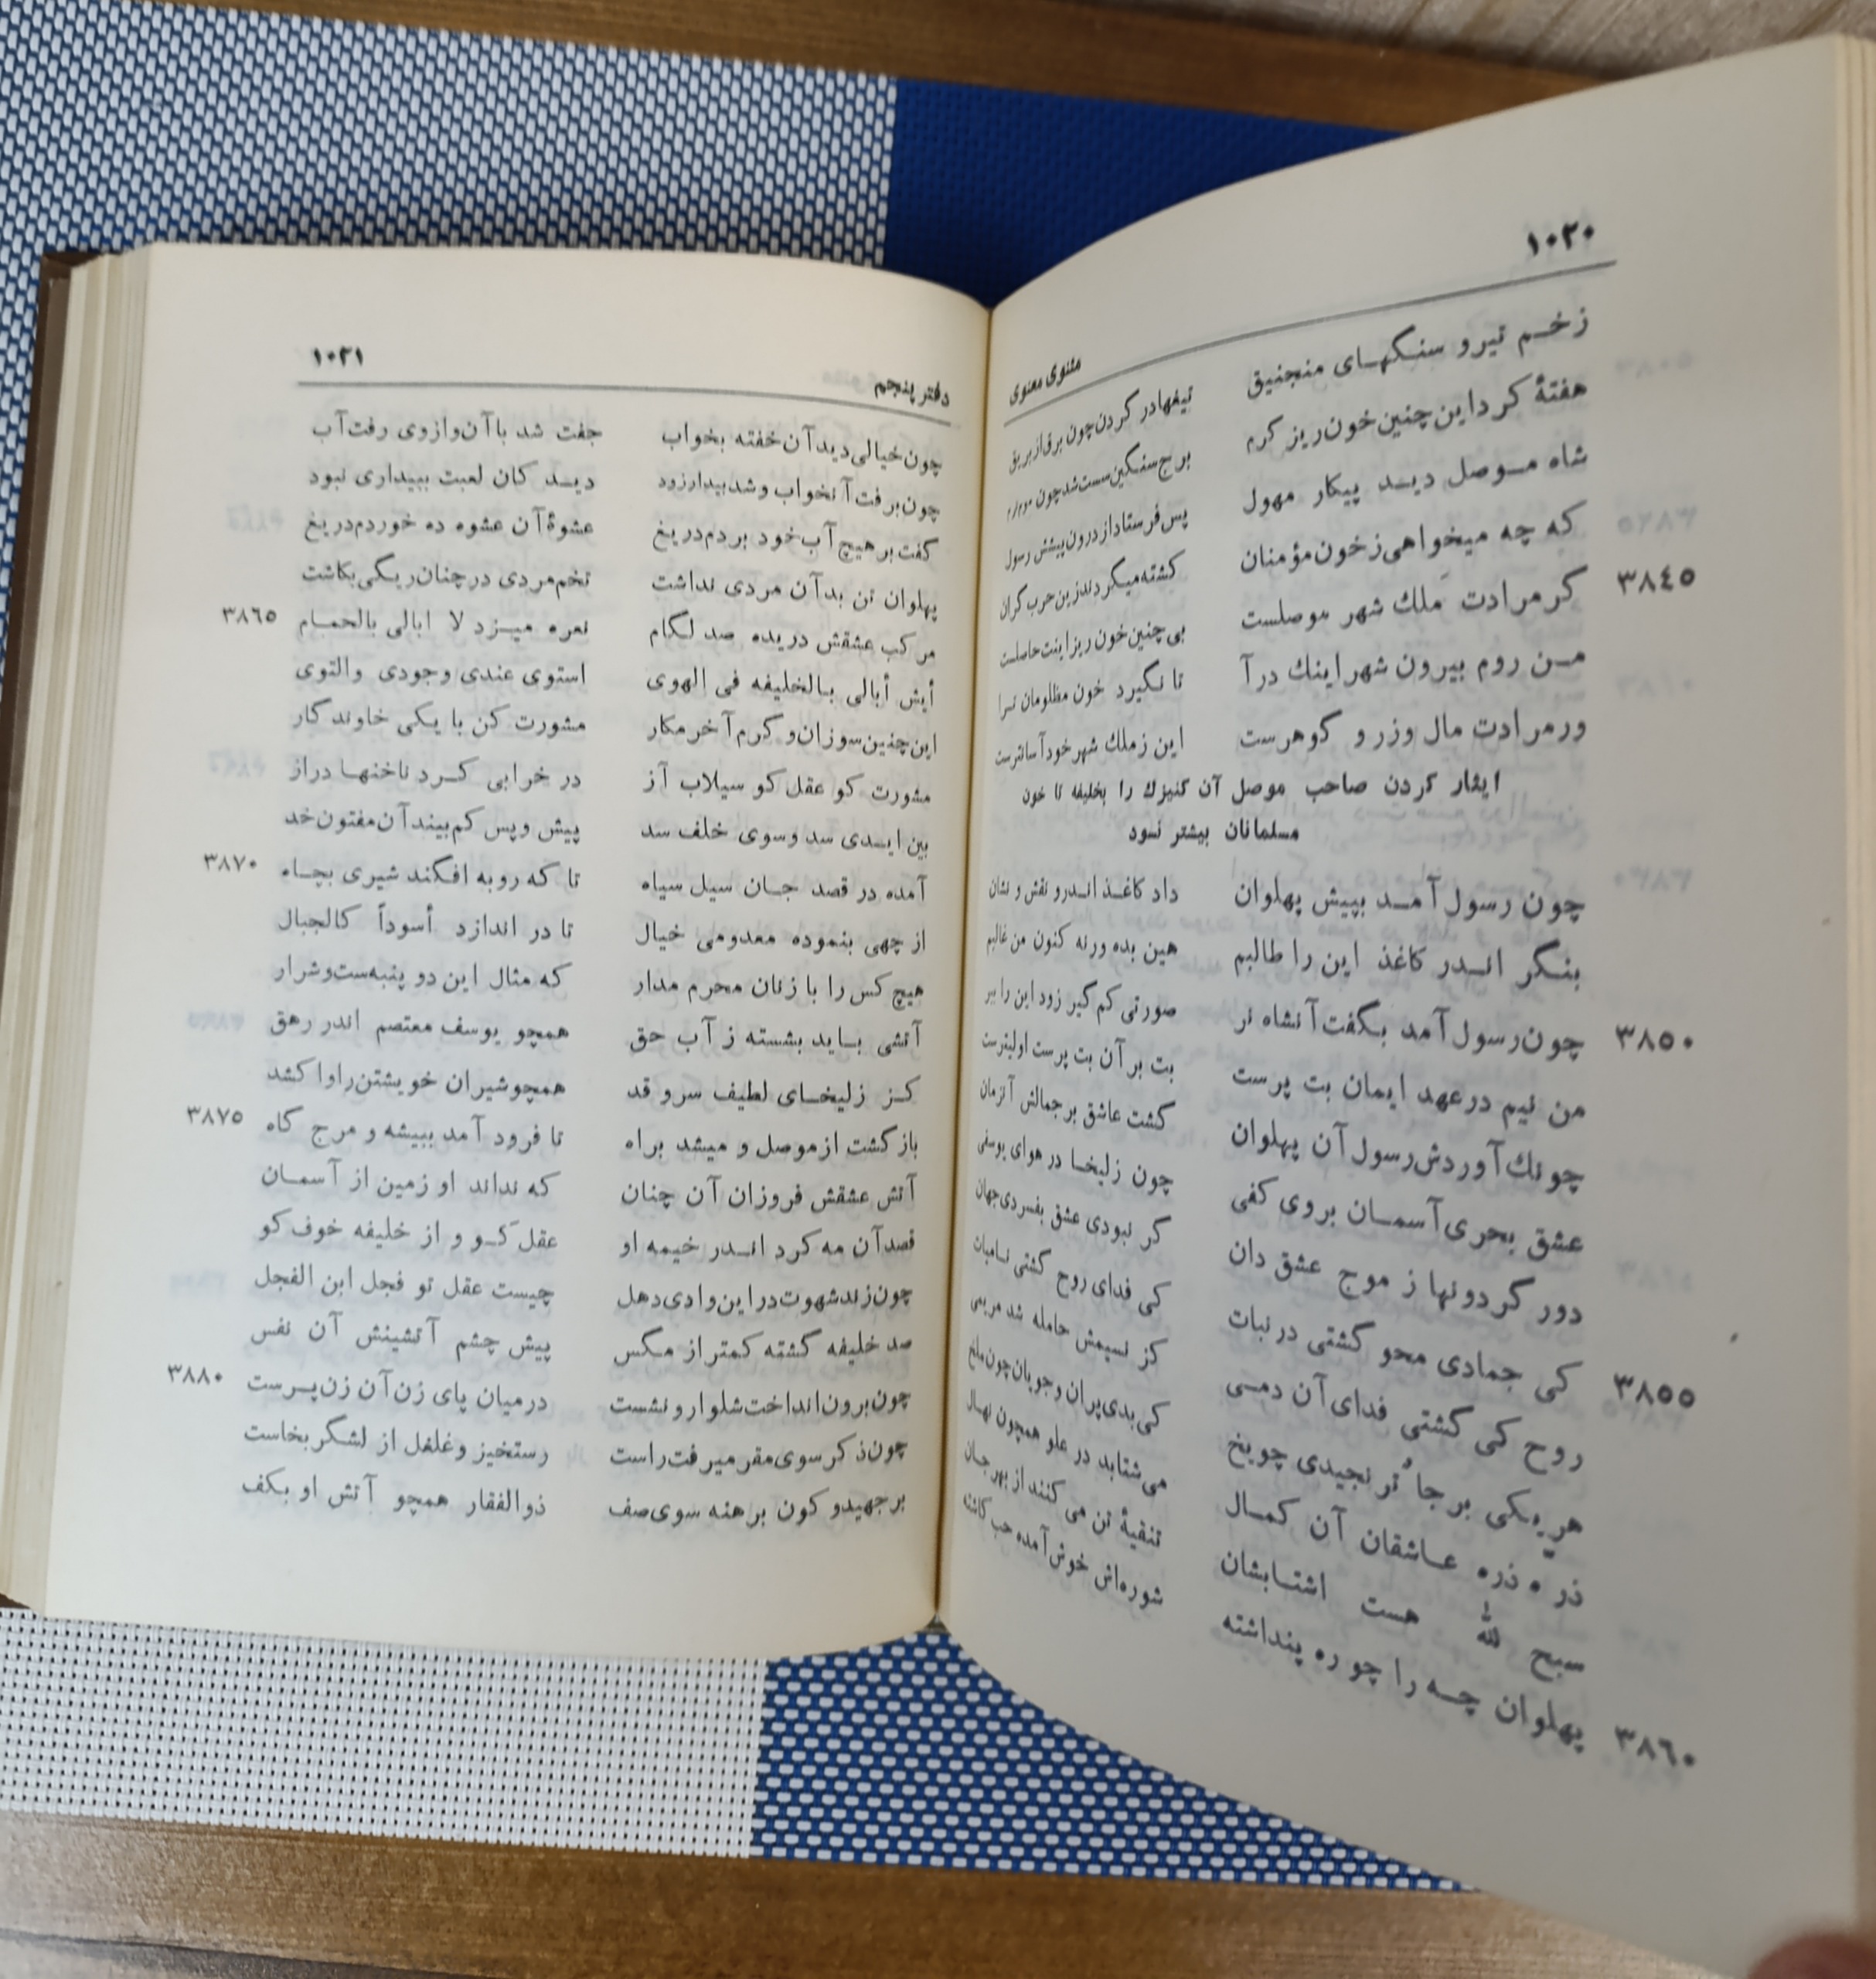 ۱۰۲۰
مثنوی معنوی
زخم تیر و سنگهای منجنیق تیغها در گردن چون برق از بریق
هفتهٔ کرد این چنین خون‌ریز گرم برج سنگین سست شد چون موم نرم
شاه موصل دید پیکار مهول پس فرستاد از درون پیشش رسول
که چه میخواهی ز خون مؤمنان کشته میگردند زین حرب گران
گر مرادت مَلك شهر موصلست بی چنین خون ریز اینت حاصلست ۳۸٤٥
من روم بیرون شهر اینك در آ تا نگیرد خون مظلومان ترا
ور مرادت مال و زر و گوهرست این ز ملك شهر خود آسانترست
ایثار کردن صاحب موصل آن کنیزك را بخلیفه تا خون
مسلمانان بیشتر نسود
چون رسول آمد بپیش پهلوان داد کاغذ اندرو نقش و نشان
بنگر اندر کاغذ این را طالبم هین بده ورنه کنون من غالبم
چون رسول آمد بگفت آنشاه نر صورتی کم گیر زود این را ببر ۳۸٥۰
من نیم در عهد ایمان بت پرست بت بر آن بت پرست اولیترست
چونك آوردش رسول آن پهلوان گشت عاشق بر جمالش آنزمان
عشق بحری آسمان بروی کفی چون زلیخا در هوای یوسفی
دور گردونها ز موج عشق دان گر نبودی عشق بفسردی جهان
کی جمادی محو گشتی در نبات کی فدای روح گشتی نامیات ۳۸٥٥
روح کی گشتی فدای آن دمی کز نسیمش حامله شد مریمی
هر یکی بر جا تُرنجیدی چو یخ کی بدی پران و جویان چون ملخ
ذره ذره عاشقان آن کمال می شتابد در علو همچون نهال
سبح لله هست اشتابشان تنقیهٔ تن می کنند از بهر جان
پهلوان چه را چو ره پنداشته شوره‌اش خوش آمده حب کاشته ۳۸٦۰
دفتر پنجم
۱۰۲۱
چون خیالی دید آن خفته بخواب جفت شد با آن و از وی رفت آب
چون برفت آنخواب و شد بیدار زود دید کان لعبت ببیداری نبود
گفت بر هیچ آب خود بردم دریغ عشوهٔ آن عشوه ده خوردم دریغ
پهلوان تن بد آن مردی نداشت تخم مردی در چنان ریگی بکاشت
مرکب عشقش دریده صد لگام نعره میزد لا ابالی بالحمام ۳۸٦٥
أیش أبالی بالخلیفه فی الهوی استوی عندی وجودی والتوی
این چنین سوزان و گرم آخر مکار مشورت کن با یکی خاوندگار
مشورت کو عقل کو سیلاب آز در خرابی کرد ناخنها دراز
بین ایدی سد و سوی خلف سد پیش و پس کم بیند آن مفتون خد
آمده در قصد جان سیل سیاه تا که روبه افکند شیری بچاه ۳۸۷۰
از چهی بنموده معدومی خیال تا در اندازد أسوداً کالجبال
هیچ کس را با زنان محرم مدار که مثال این دو پنبه‌ست و شرار
آتشی باید بشسته ز آب حق همچو یوسف معتصم اندر رهق
کز زلیخای لطیف سرو قد همچو شیران خویشتن را وا کشد
باز گشت از موصل و میشد براه تا فرود آمد ببیشه و مرج گاه ۳۸۷٥
آتش عشقش فروزان آن چنان که نداند او زمین از آسمان
قصد آن مه کرد اندر خیمه او عقل کو و از خلیفه خوف کو
چون زند شهوت در این وادی دهل چیست عقل تو فجل ابن الفجل
صد خلیفه گشته کمتر از مگس پیش چشم آتشینش آن نفس
چون برون انداخت شلوار و نشست در میان پای زن آن زن پرست ۳۸۸۰
چون ذکر سوی مقر میرفت راست رستخیز و غلغل از لشگر بخاست
بر جهید و کون برهنه سوی صف ذوالفقار همچو آتش او بکف